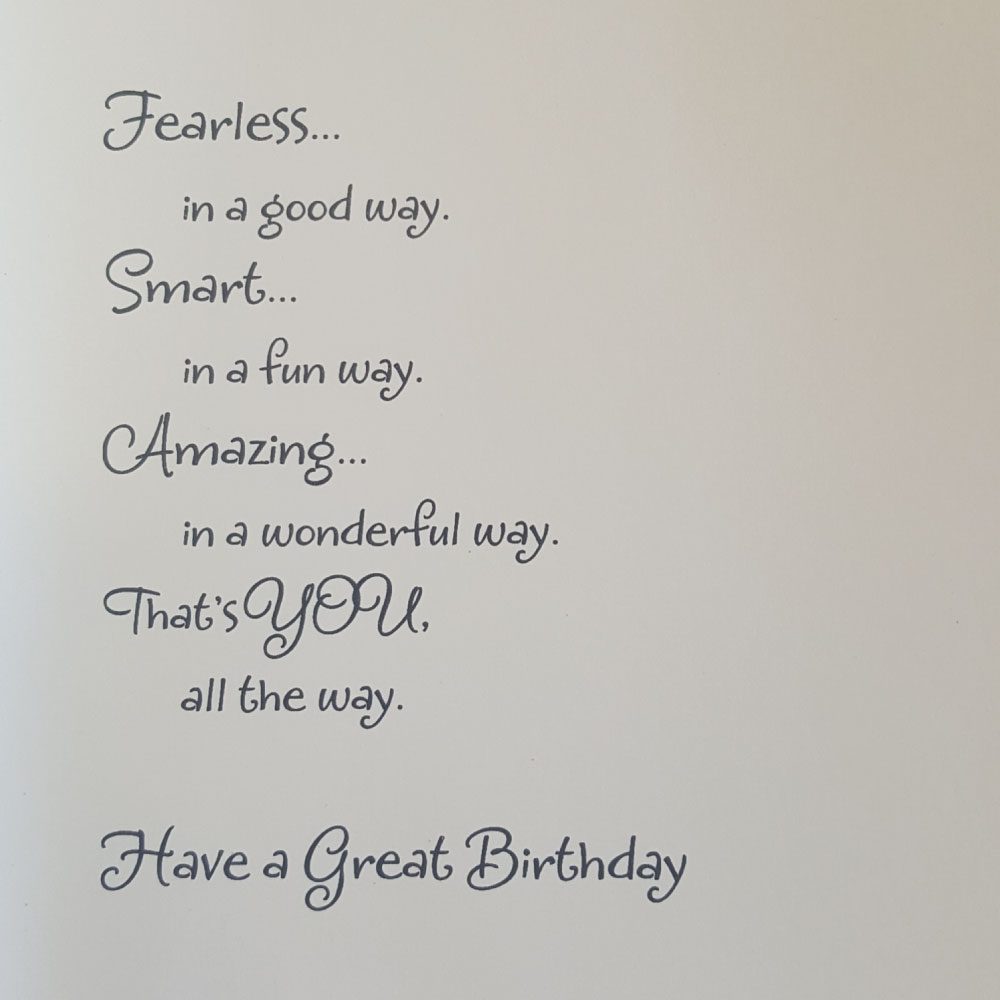 Fearless...
in a good way.
Smart...
in a fun way.
Amazing...
in a wonderful way.
That's YOU,
all the way.
Have a Great Birthday